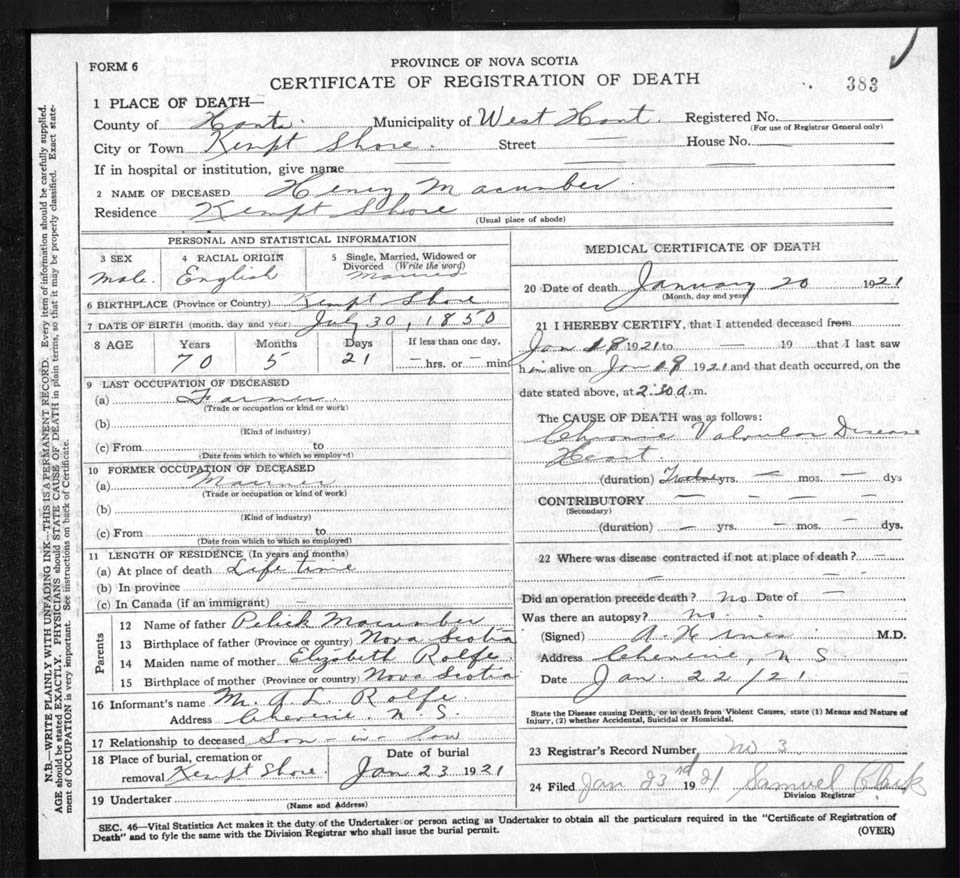 FORM 6
PROVINCE OF NOVA SCOTIA
CERTIFICATE OF REGISTRATION OF DEATH
383
1 PLACE OF DEATH—
County of Hants. Municipality of West Hant. Registered No.
(For use of Registrar General only)
City or Town Kempt Shore. Street — House No. —
If in hospital or institution, give name — — —
2 NAME OF DECEASED Henry Macumber
Residence Kempt Shore
(Usual place of abode)
PERSONAL AND STATISTICAL INFORMATION
3 SEX
Male.
4 RACIAL ORIGIN
English
5 Single, Married, Widowed or
Divorced (Write the word)
Married
6 BIRTHPLACE (Province or Country) Kempt Shore
7 DATE OF BIRTH (month, day and year) July 30, 1850
8 AGE Years Months Days If less than one day,
70 5 21 — hrs. or — min
9 LAST OCCUPATION OF DECEASED
(a) Farmer
(Trade or occupation or kind or work)
(b)
(Kind of industry)
(c) From to
(Date from which to which so employed)
10 FORMER OCCUPATION OF DECEASED
(a) Mariner
(Trade or occupation or kind of work)
(b)
(Kind of industry)
(c) From to
(Date from which to which so employed)
11 LENGTH OF RESIDENCE (In years and months)
(a) At place of death Life time
(b) In province
(c) In Canada (if an immigrant) —
Parents
12 Name of father Macumber
13 Birthplace of father (Province or country) Nova Scotia
14 Maiden name of mother Elizabeth Rolfe.
15 Birthplace of mother (Province or country) Nova Scotia
16 Informant's name M. A. L. Rolfe.
Address Cheverie, N. S.
17 Relationship to deceased Son-in-law
18 Place of burial, cremation or Date of burial
removal Kempt Shore. Jan 23 1921
19 Undertaker
(Name and Address)
MEDICAL CERTIFICATE OF DEATH
20 Date of death January 20 1921
(Month, day and year)
21 I HEREBY CERTIFY, that I attended deceased from
Jan 18 1921 to — 19 that I last saw
him alive on Jan 19 1921 and that death occurred, on the
date stated above, at 2:30 a. m.
The CAUSE OF DEATH was as follows:
Chronic Valvular Disease
Heart.
(duration) yrs. — mos. — dys
CONTRIBUTORY — — — —
(Secondary)
(duration) — yrs. — mos. — dys.
22 Where was disease contracted if not at place of death? —
— —
Did an operation precede death? No Date of —
Was there an autopsy? No.
(Signed) M.D.
Address Cheverie, N S.
Date Jan. 22/21
State the Disease causing Death, or in death from Violent Causes, state (1) Means and Nature of
Injury, (2) whether Accidental, Suicidal or Homicidal.
23 Registrar's Record Number, No 3
24 Filed Jan 23rd 1921 Samuel Clark
Division Registrar
SEC. 46—Vital Statistics Act makes it the duty of the Undertaker or person acting as Undertaker to obtain all the particulars required in the "Certificate of Registration of
Death" and to fyle the same with the Division Registrar who shall issue the burial permit.
(OVER)
N.B.—WRITE PLAINLY WITH UNFADING INK—THIS IS A PERMANENT RECORD. Every item of information should be carefully supplied.
AGE should be stated EXACTLY. PHYSICIANS should STATE CAUSE OF DEATH in plain terms, so that it may be properly classified. Exact state-
ment of OCCUPATION is very important. See instructions on back of Certificate.